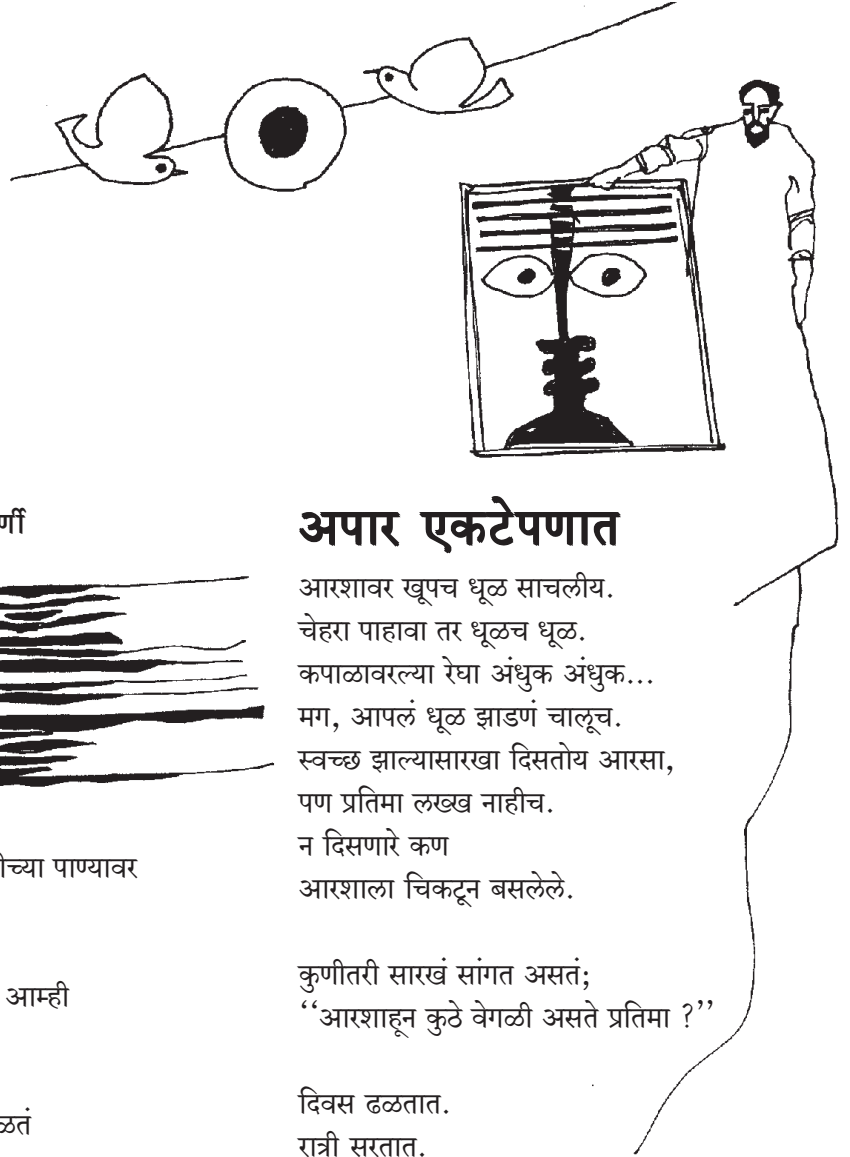 र्णी
ीच्या पाण्यावर
आम्ही
ळतं
अपार एकटेपणात
आरशावर खूपच धूळ साचलीय.
चेहरा पाहावा तर धूळच धूळ.
कपाळावरल्या रेघा अंधुक अंधुक...
मग, आपलं धूळ झाडणं चालूच.
स्वच्छ झाल्यासारखा दिसतोय आरसा,
पण प्रतिमा लख्ख नाहीच.
न दिसणारे कण
आरशाला चिकटून बसलेले.
कुणीतरी सारखं सांगत असतं;
‘‘आरशाहून कुठे वेगळी असते प्रतिमा ?’’
दिवस ढळतात.
रात्री सरतात.